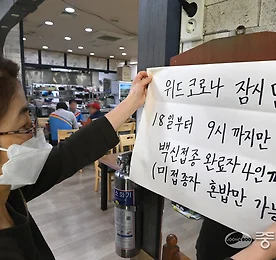 위드코로나 잠시
18일부터 9시까지만
백신접종 완료자 4인
(미접종자 혼밥만 가능
소화기
중